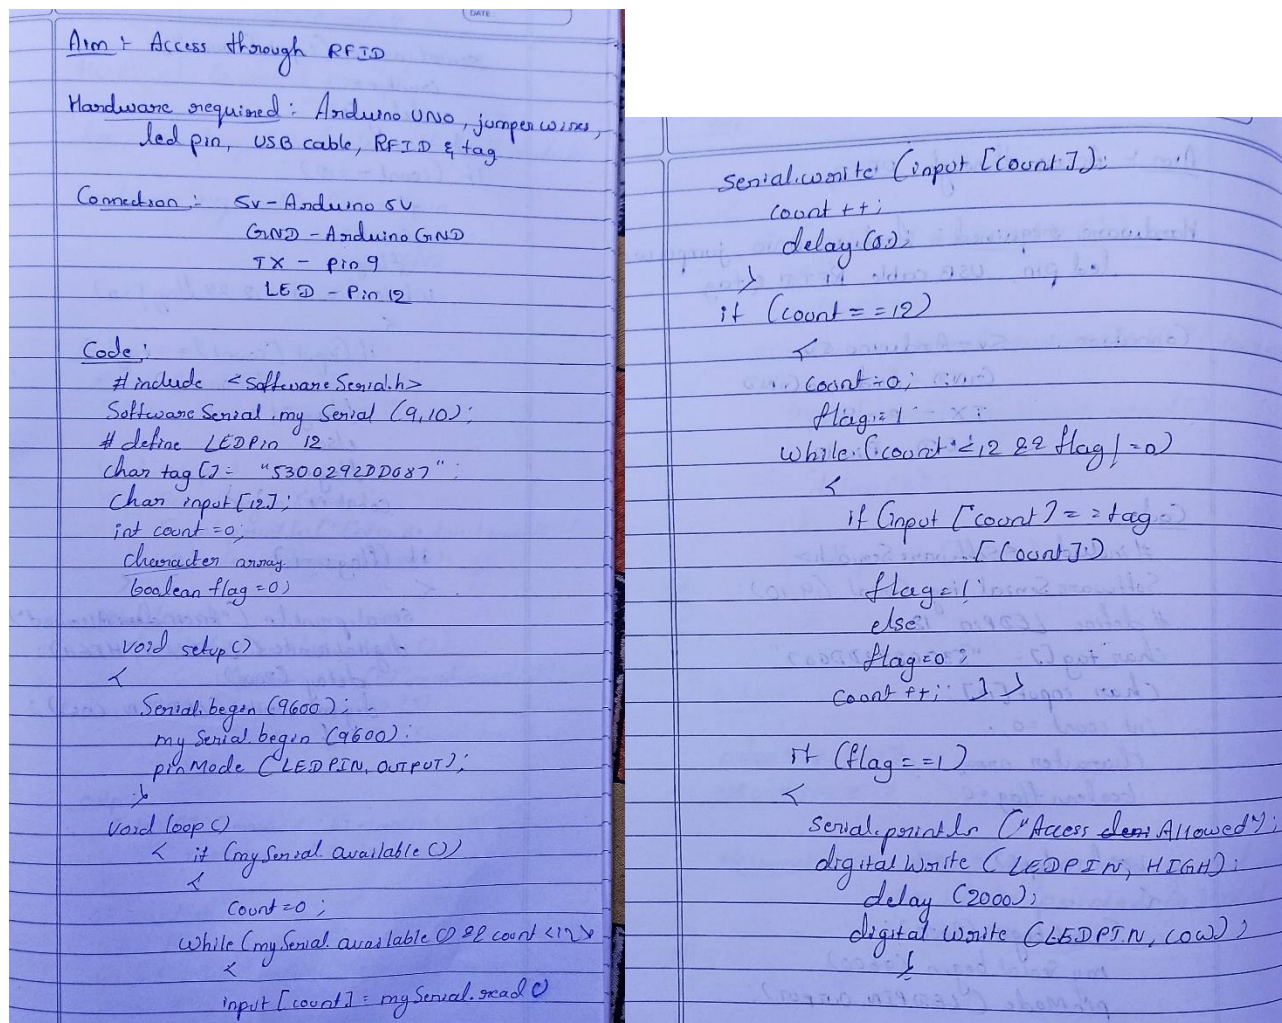 DATE
Aim :- Access through RFID
Hardware required : Arduino UNO, jumper wires,
led pin, USB cable, RFID & tag
Connection :- 5V - Arduino 5V
GND - Arduino GND
TX - pin 9
LED - Pin 12
Code :
# include <SoftwareSerial.h>
Software Serial my Serial (9,10);
# define LEDPin 12
char tag [] = "5300292DD087";
Char input [12];
int count =0;
character array
boolean flag =0;
void setup ()
{
Serial.begin (9600);
my Serial.begin (9600);
pinMode (LEDPIN, OUTPUT);
}
void loop ()
{ if (my Serial. available ())
{
Count =0;
while (my Serial. available () && count <12)
{
input [count] = my Serial.read ()
Serial.write (input [count]);
count ++;
delay (5);
}
if (count = =12)
{
count =0;
flag = 1
while (count <12 && flag ! =0)
{
if (input [count] = = tag
[count])
flag = 1
else
flag =0;
count ++; } }
if (flag = =1)
{
Serial.println ("Access Allowed");
digital Write (LEDPIN, HIGH);
delay (2000);
digital Write (LEDPIN, LOW);
}